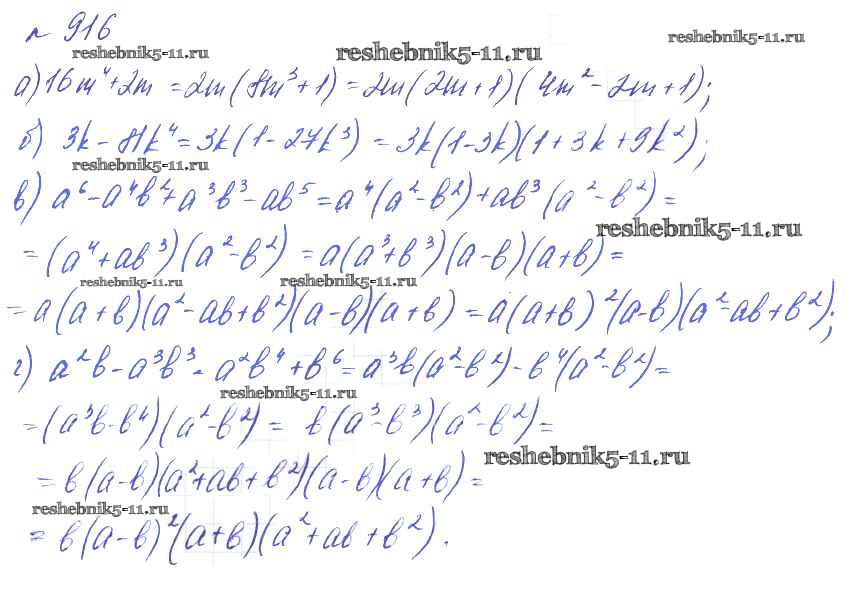 № 916
reshebnik5-11.ru
reshebnik5-11.ru
reshebnik5-11.ru
а) 16m⁴+2m = 2m(8m³+1) = 2m(2m+1)(4m²-2m+1);
б) 3k - 81k⁴ = 3k(1-27k³) = 3k(1-3k)(1+3k+9k²);
reshebnik5-11.ru
в) a⁶-a⁴b²+a³b³-ab⁵ = a⁴(a²-b²)+ab³(a²-b²) =
reshebnik5-11.ru
= (a⁴+ab³)(a²-b²) = a(a³+b³)(a-b)(a+b) =
reshebnik5-11.ru
reshebnik5-11.ru
= a(a+b)(a²-ab+b²)(a-b)(a+b) = a(a+b)²(a-b)(a²-ab+b²);
г) a²b-a³b³-a²b⁴+b⁶ = a³b(a²-b²)-b⁴(a²-b²) =
reshebnik5-11.ru
= (a³b-b⁴)(a²-b²) = b(a³-b³)(a²-b²) =
reshebnik5-11.ru
= b(a-b)(a²+ab+b²)(a-b)(a+b) =
reshebnik5-11.ru
= b(a-b)²(a+b)(a²+ab+b²).